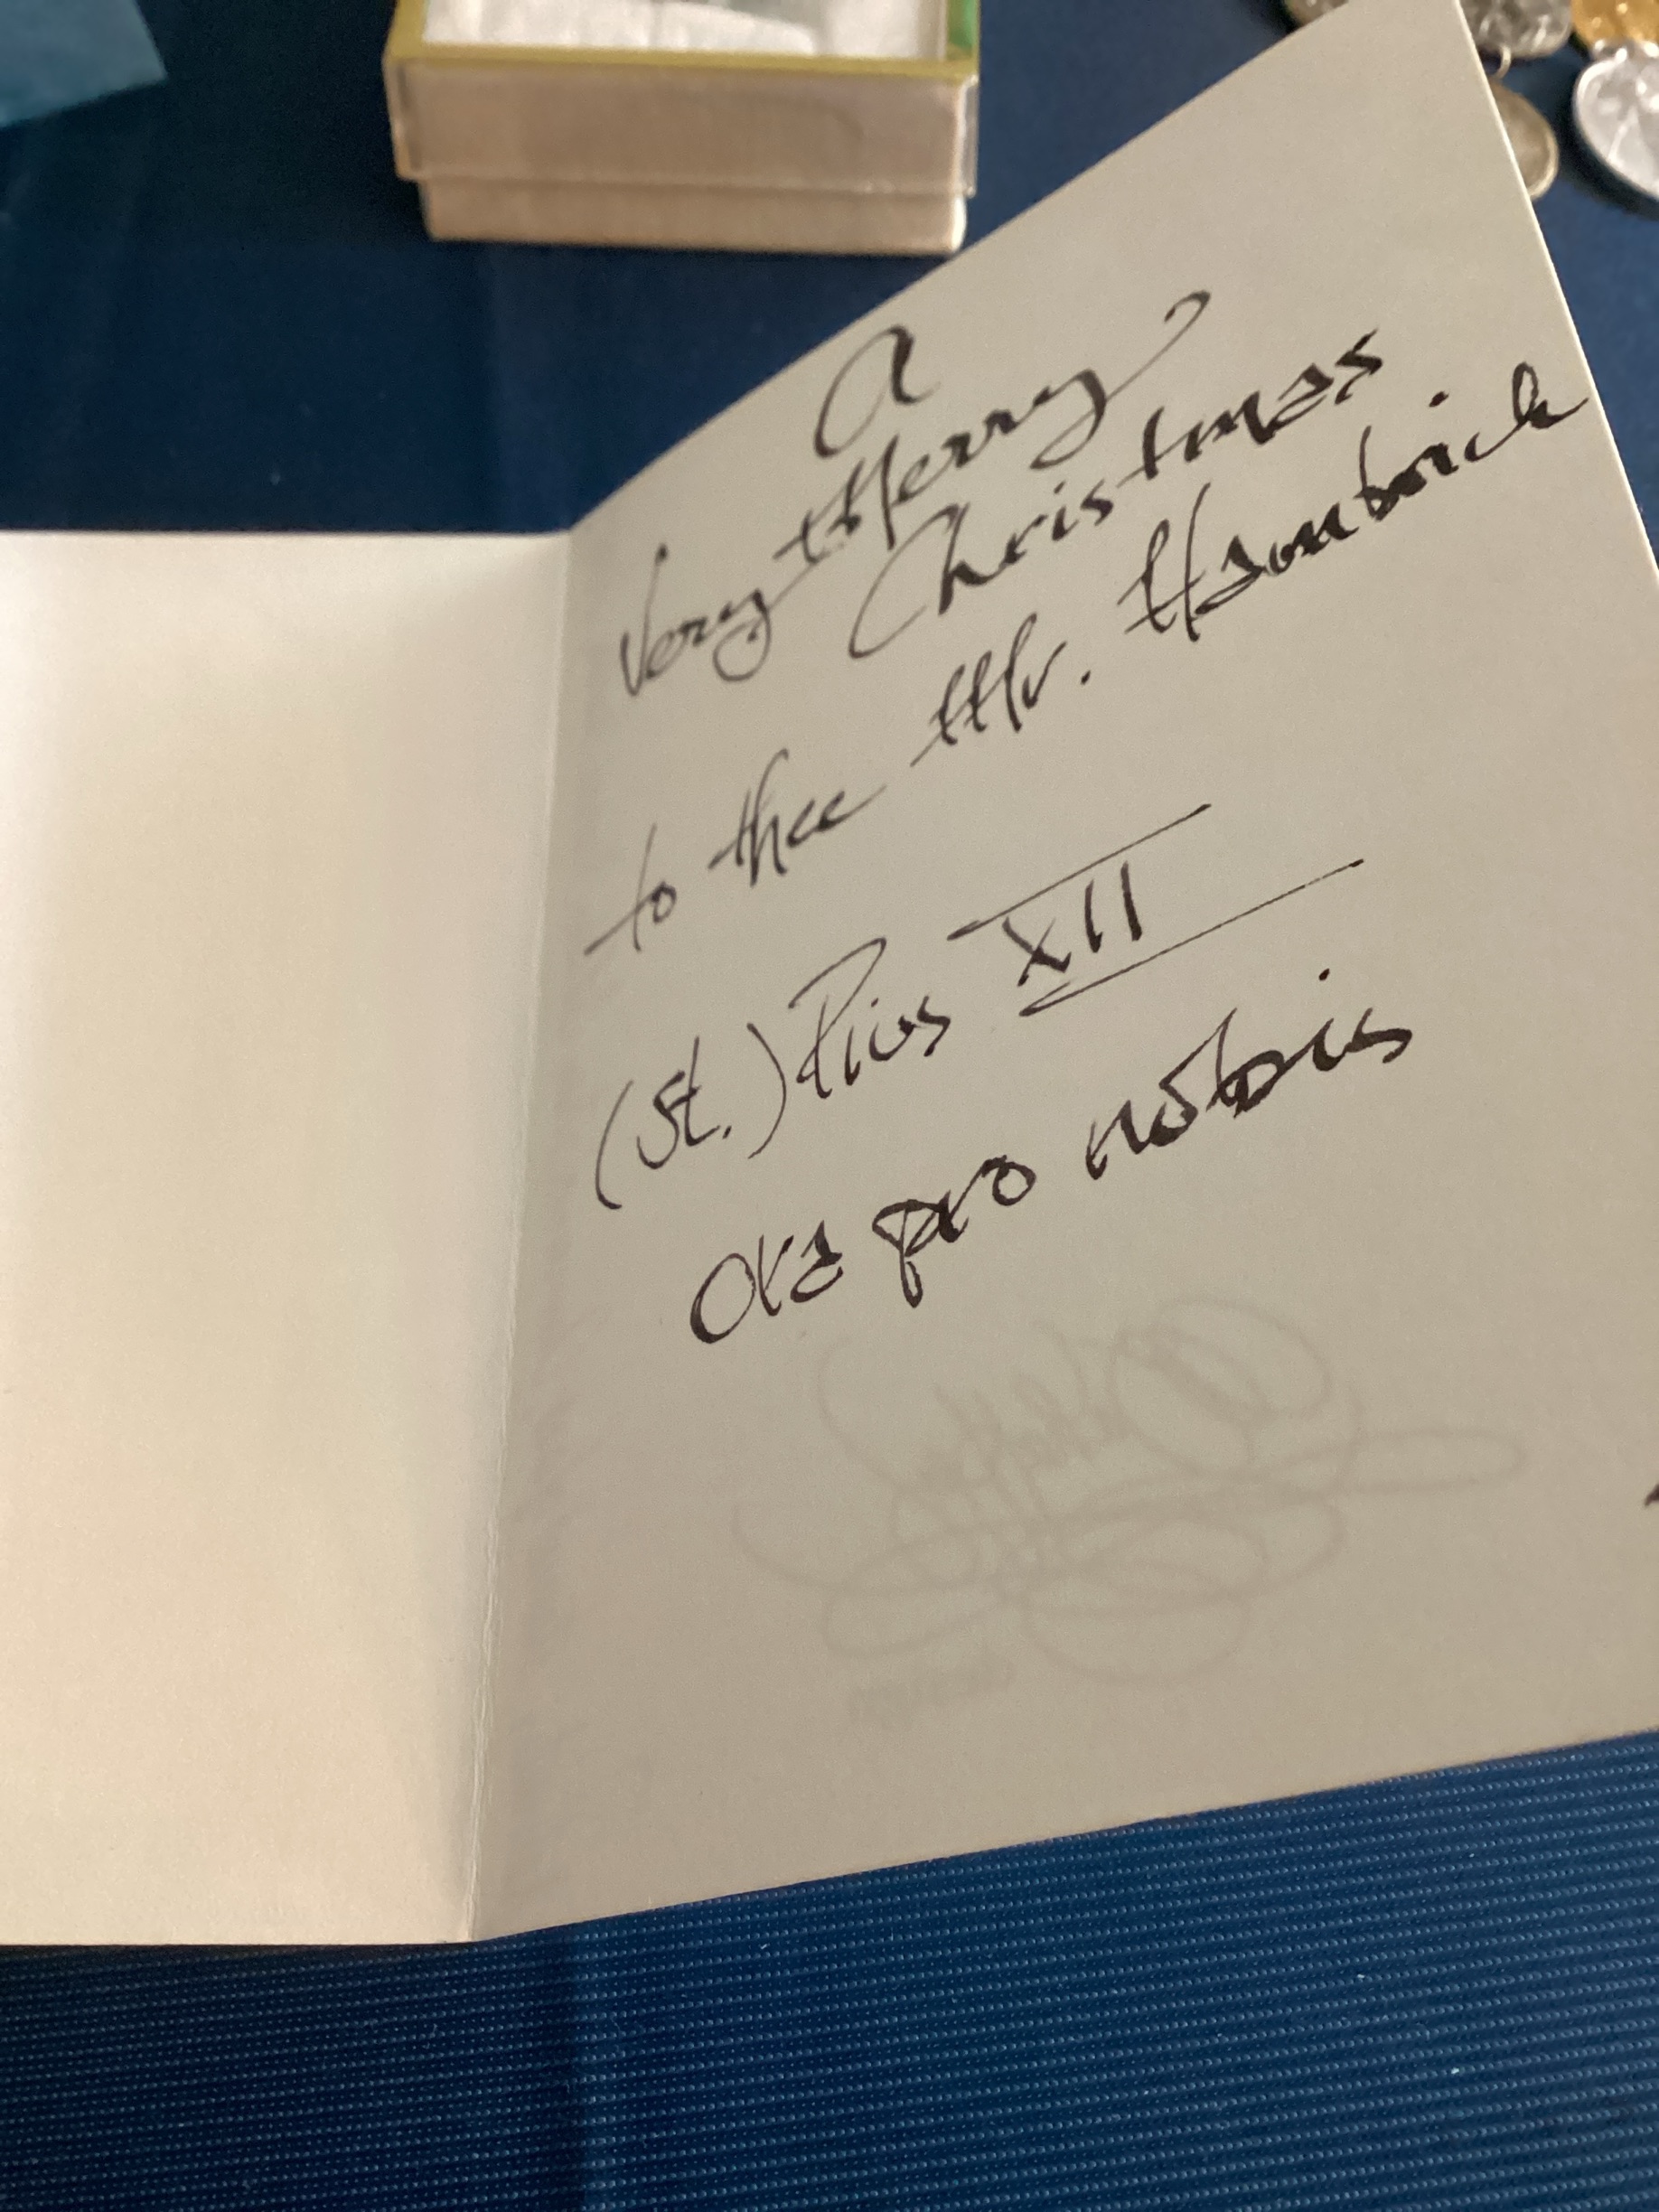 A
Very Merry
Christmas
to thee Mr. Hambrick
(St.) Pius XII
ora pro nobis